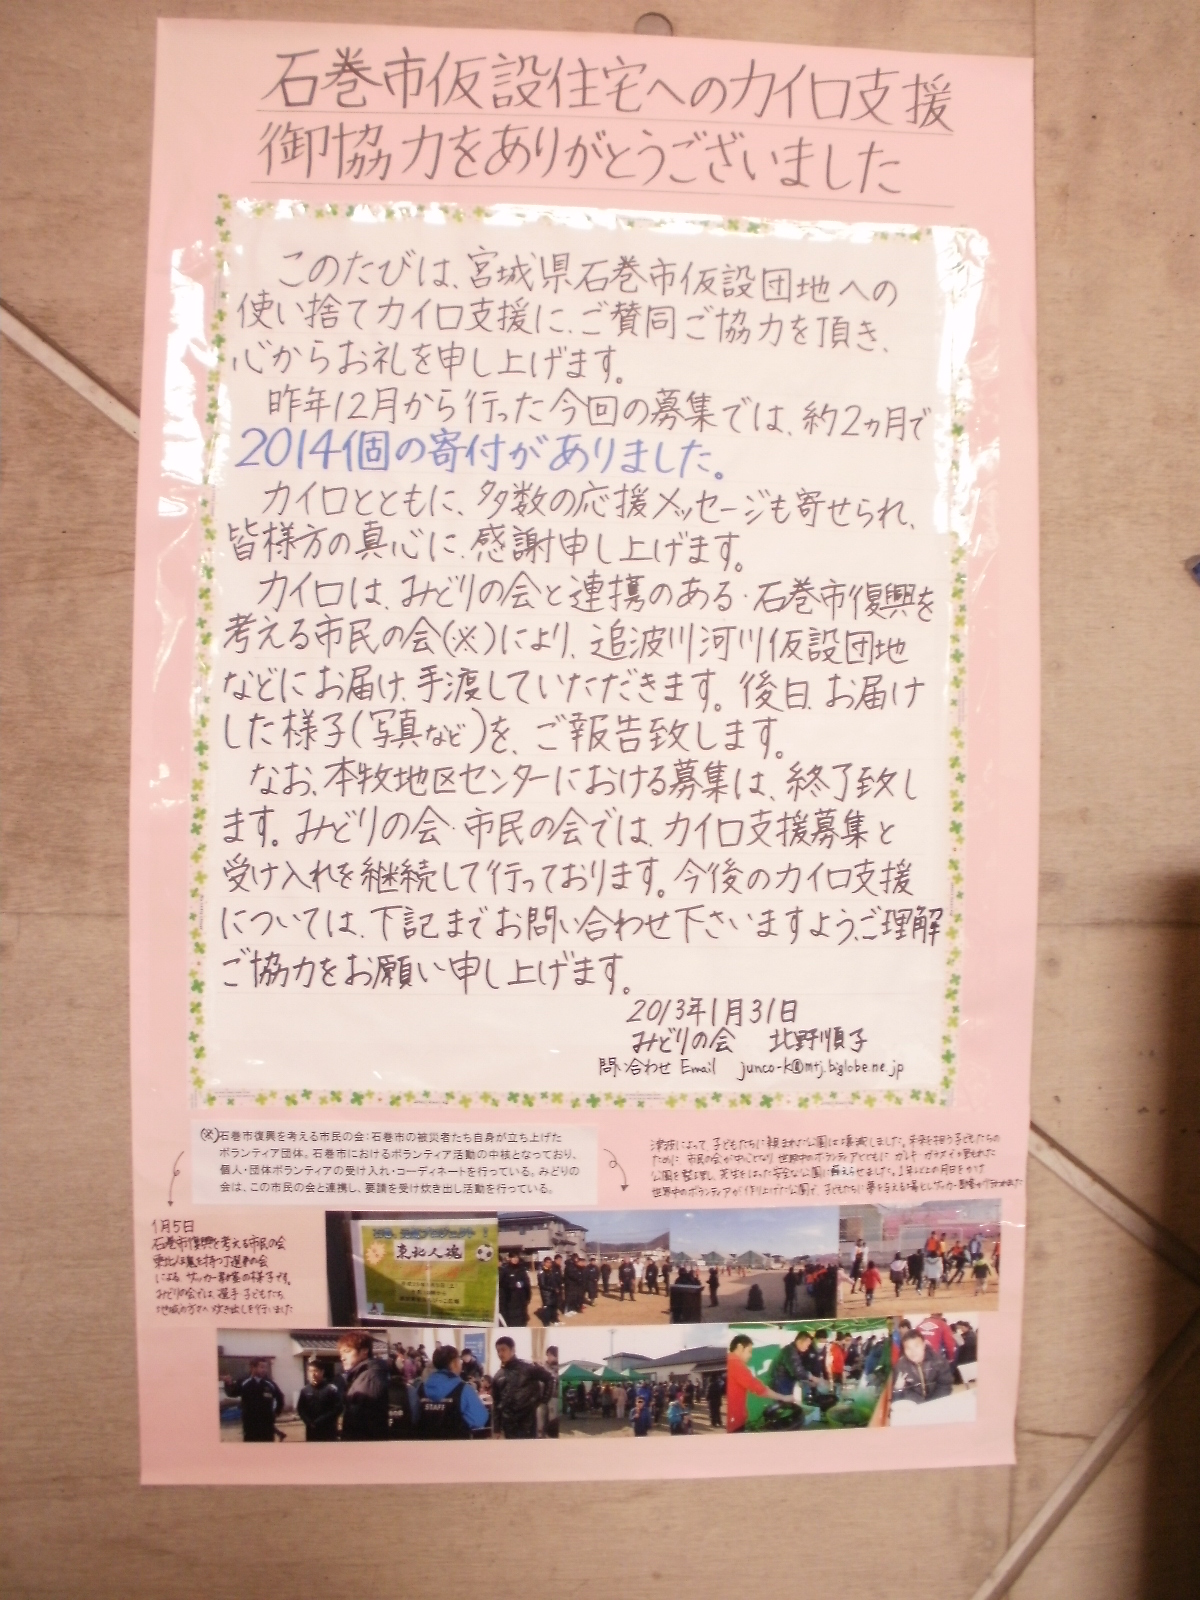 石巻市仮設住宅へのカイロ支援
御協力をありがとうございました
このたびは、宮城県石巻市仮設団地への
使い捨てカイロ支援に、ご賛同ご協力を頂き、
心からお礼を申し上げます。
昨年12月から行った今回の募集では、約2ヵ月で
2014個の寄付がありました。
カイロとともに、多数の応援メッセージも寄せられ、
皆様方の真心に、感謝申し上げます。
カイロは、みどりの会と連携のある・石巻市復興を
考える市民の会(※)により、追波川河川仮設団地
などにお届け、手渡していただきます。後日、お届け
した様子(写真など)を、ご報告致します。
なお、本牧地区センターにおける募集は、終了致し
ます。みどりの会・市民の会では、カイロ支援募集と
受け入れを継続して行っております。今後のカイロ支援
については、下記までお問い合わせ下さいますよう、ご理解
ご協力をお願い申し上げます。
2013年1月31日
みどりの会 北野順子
問い合わせ Email junco-k@mtj.biglobe.ne.jp
(※)石巻市復興を考える市民の会：石巻市の被災者たち自身が立ち上げた
ボランティア団体。石巻市におけるボランティア活動の中核となっており、
個人・団体ボランティアの受け入れ・コーディネートを行っている。みどりの
会は、この市民の会と連携し、要請を受け炊き出し活動を行っている。
津波によって、子どもたちに親しまれた公園は壊滅しました。未来を担う子どもたちの
ために、市民の会が中心となり、世界中のボランティアとともに、ガレキ・ガラスイ
公園を整え直し、芝生をはった安全な公園に甦えらせました。1年以上の月日をかけ
世界中のボランティアが作り上げた公園で、子どもたちに夢を与える場としサッカー
1月5日
石巻市復興を考える市民の会
東北人魂を持つ選手の会
による サッカー教室の様子です。
みどりの会では、選手 子どもたち
地域の方々へ 炊き出しを行いました
東北人魂
STAFF